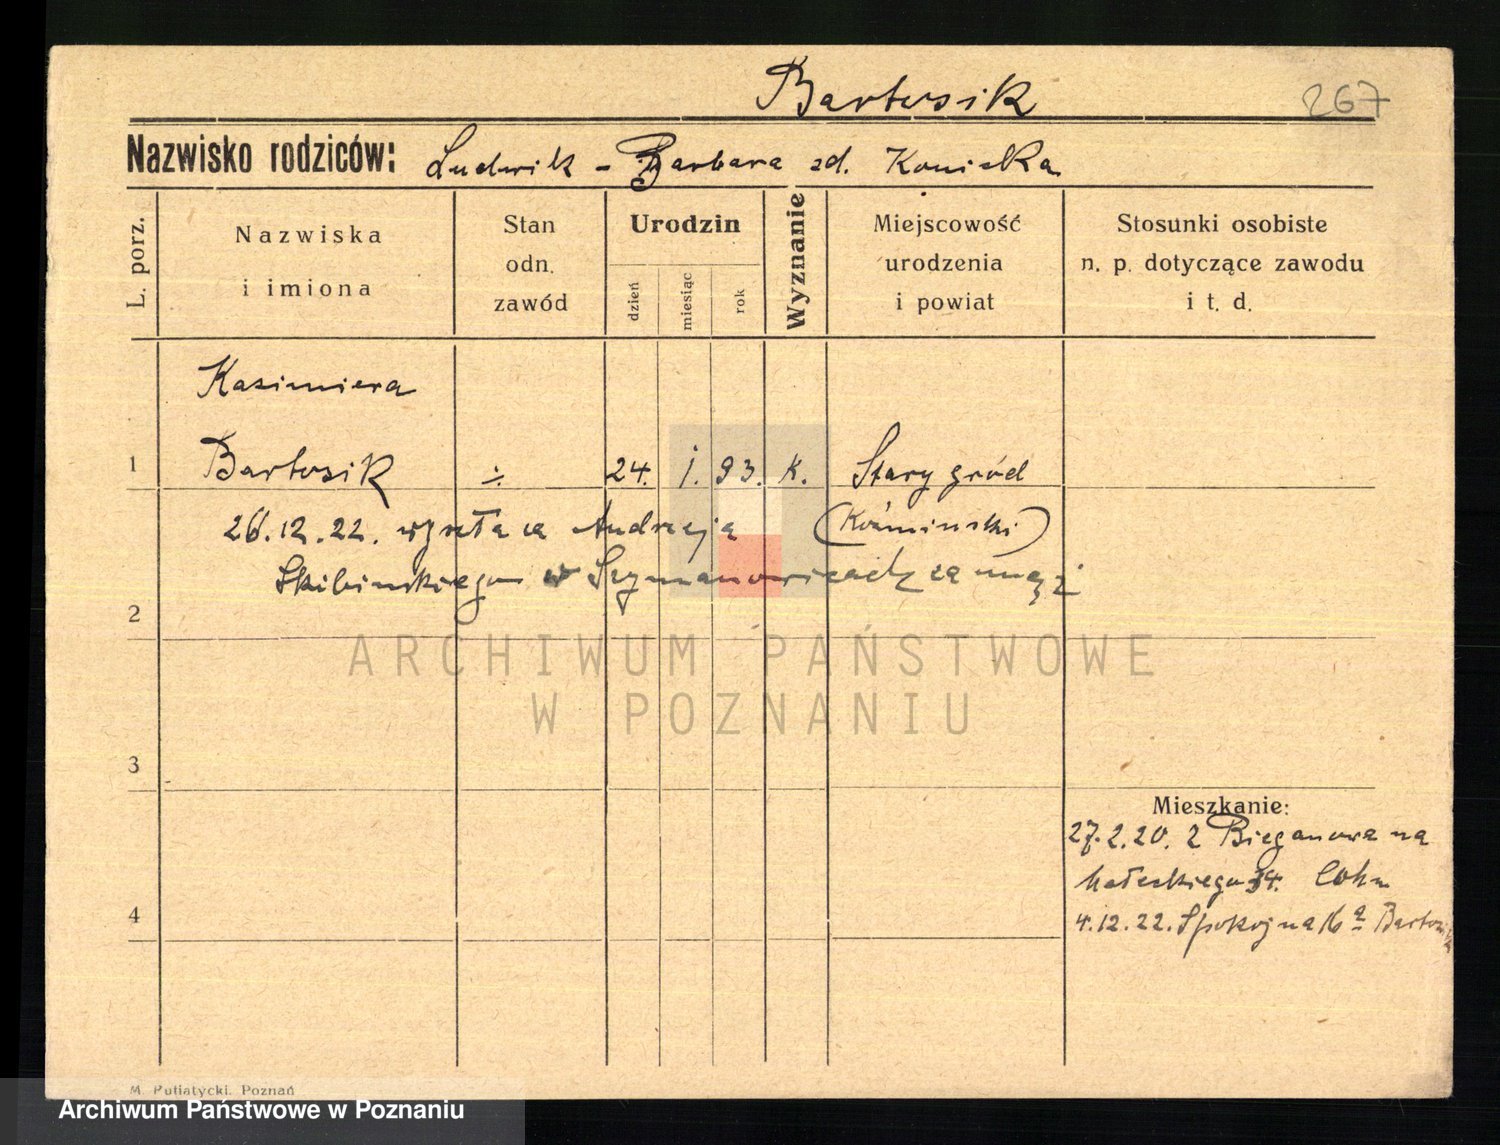 Bartosik
267
Nazwisko rodziców: Ludwik - Barbara zd. Koniecka
L. porz.
Nazwiska
i imiona
Stan
odn.
zawód
Urodzin
dzień
miesiąc
rok
Wyznanie
Miejscowość
urodzenia
i powiat
Stosunki osobiste
n. p. dotyczące zawodu
i t. d.
Kazimiera
1 Bartosik ÷ 24. 1. 93. k. Stary gród
26.12.22. wyszła za Andrzeja (Koźmiński)
Skibińskiego w Szymanowicach za mąż
2
ARCHIWUM PAŃSTWOWE
W POZNANIU
3
Mieszkanie:
27.2.20. z Bieganowa na
Małeckiego 34.
4
4.12.22. Spokojna 16a Bartosik
M. Putiatycki. Poznań
Archiwum Państwowe w Poznaniu